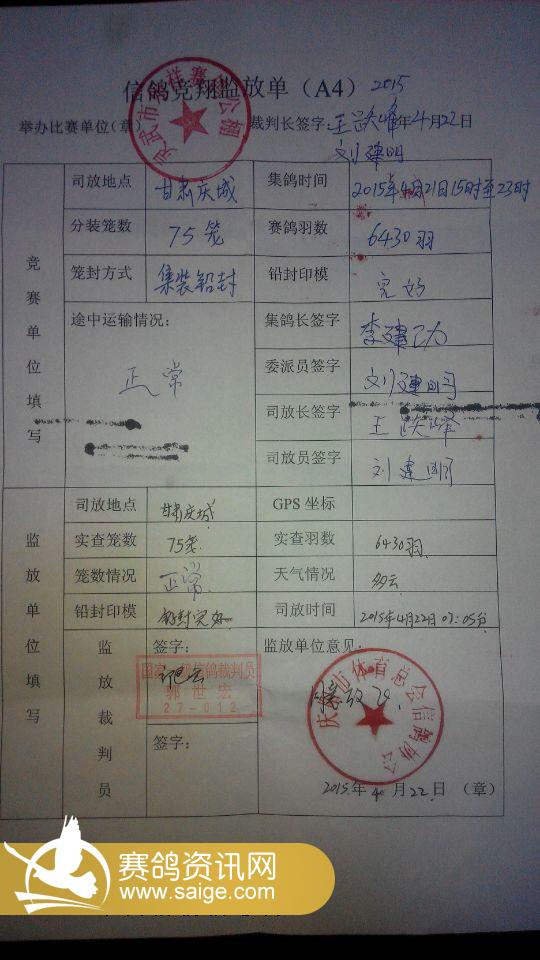 信鸽竞翔监放单（A4）
举办比赛单位（章） 裁判长签字：王跃峰 2015年4月22日
刘建明
竞赛单位填写
司放地点 甘肃庆城 集鸽时间 2015年4月21日15时至23时
分装笼数 75笼 赛鸽羽数 6430羽
笼封方式 集装铅封 铅封印模 完好
途中运输情况： 正常 集鸽长签字 李建功
委派员签字 刘建明
司放长签字 王跃峰
司放员签字 刘建明
监放单位填写
司放地点 甘肃庆城 GPS 坐标
实查笼数 75笼 实查羽数 6430羽
笼数情况 正常 天气情况 多云
铅封印模 铅封完好 司放时间 2015年4月22日 07:05分
监放裁判员
签字： 监放单位意见：
国家一级信鸽裁判员
郭世宏
27-012
签字：
2015年4月22日 （章）
赛鸽资讯网
www.saige.com